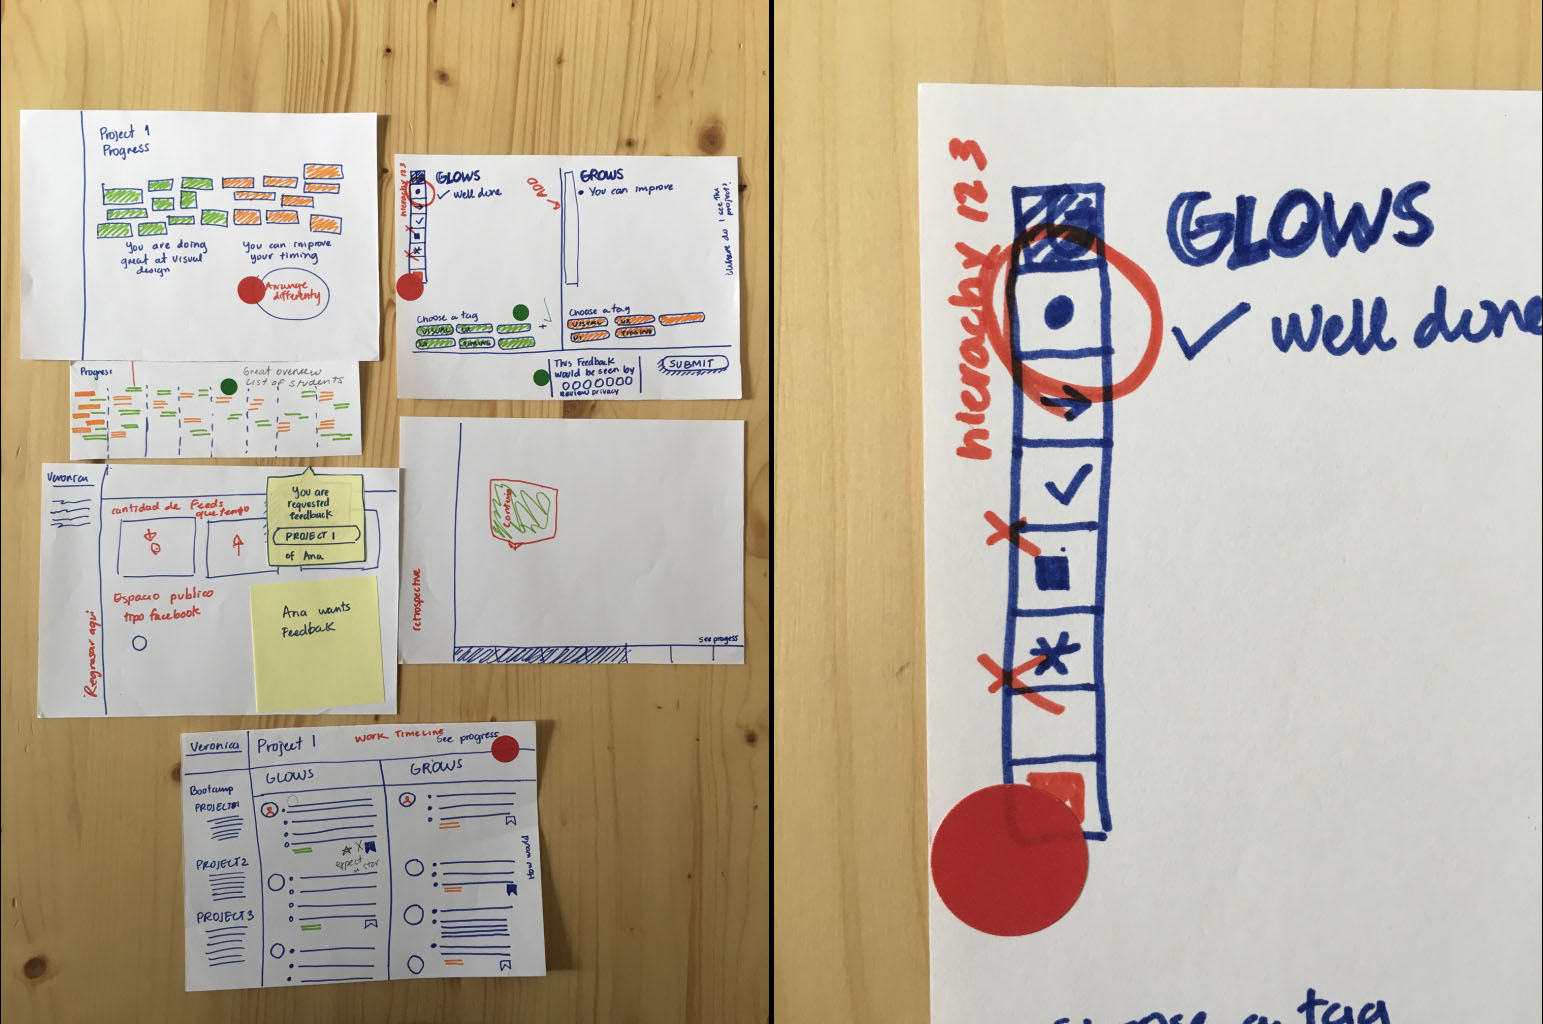 Project 1
Progress
You are doing
great at visual
design
You can improve
your timing
Arrange
differently
hierachy 123
GLOWS
✓ Well done
ADD
GROWS
• You can improve
Where do I see the
project?
Choose a tag
VISUAL UX
UI TIMING
+
Choose a tag
VISUAL UX
UI TIMING
This Feedback
would be seen by
Review privacy
SUBMIT
Progress
Great overview
List of students
Veronica
cantidad de Feeds
que tengo
You are
requested
feedback
PROJECT 1
of Ana
Espacio publico
tipo facebook
Regresar aqui
Ana wants
Feedbak
retrospective
see progess
Veronica
Project 1
WORK TIMELINE
See progress
GLOWS
GROWS
Bootcamp
PROJECT#1
PROJECT2
PROJECT3
expect
a star
hierachy 123
GLOWS
✓ Well done
Choose a tag